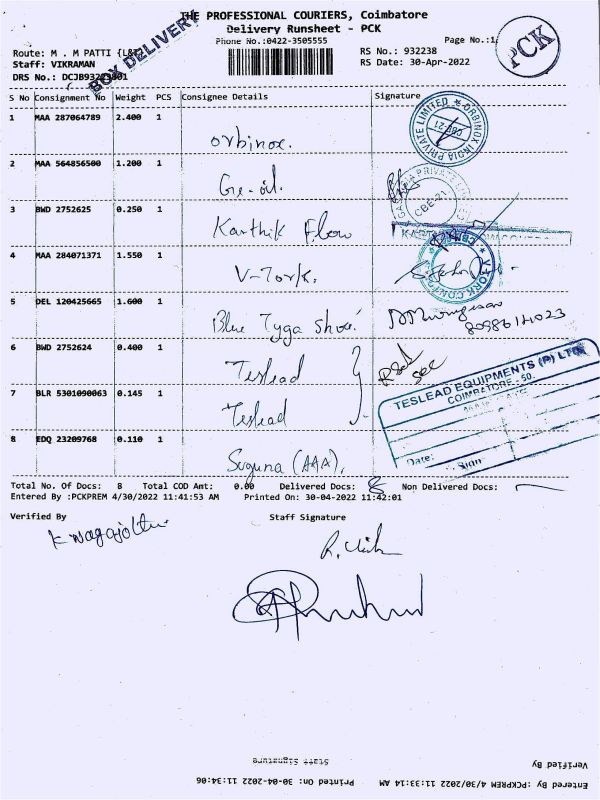 THE PROFESSIONAL COURIERS, Coimbatore
Delivery Runsheet - PCK
Phone No.:0422-3505555
Page No.:1
PCK
BOX DELIVERY
Route: M . M PATTI {L&T}
Staff: VIKRAMAN
RS No.: 932238
RS Date: 30-Apr-2022
DRS No.: DCJB93223801
S No Consignment No Weight PCS Consignee Details Signature
1 MAA 287064789 2.400 1 Orbinox.
ORBINOX INDIA PRIVATE LIMITED
CBE-21
2 MAA 564856500 1.200 1 Ge-oil.
CBE-21
3 BWD 2752625 0.250 1 Karthik Flow
4 MAA 284071371 1.550 1 V-Tork.
V-TORK CONTROLS
5 DEL 120425665 1.600 1 Blue Tyga Show.
6 BWD 2752624 0.400 1 Teslead
7 BLR 5301090063 0.145 1 Teslead
TESLEAD EQUIPMENTS (P) LTD
COIMBATORE - 50.
Date:
Sign
8 EDQ 23209768 0.110 1 Suguna (AAA).
Total No. Of Docs: 8 Total COD Amt: 0.00 Delivered Docs: 8 Non Delivered Docs: —
Entered By :PCKPREM 4/30/2022 11:41:53 AM Printed On: 30-04-2022 11:42:01
Verified By Staff Signature
Verified By Staff Signature
Entered By :PCKPREM 4/30/2022 11:33:14 AM Printed On: 30-04-2022 11:34:06